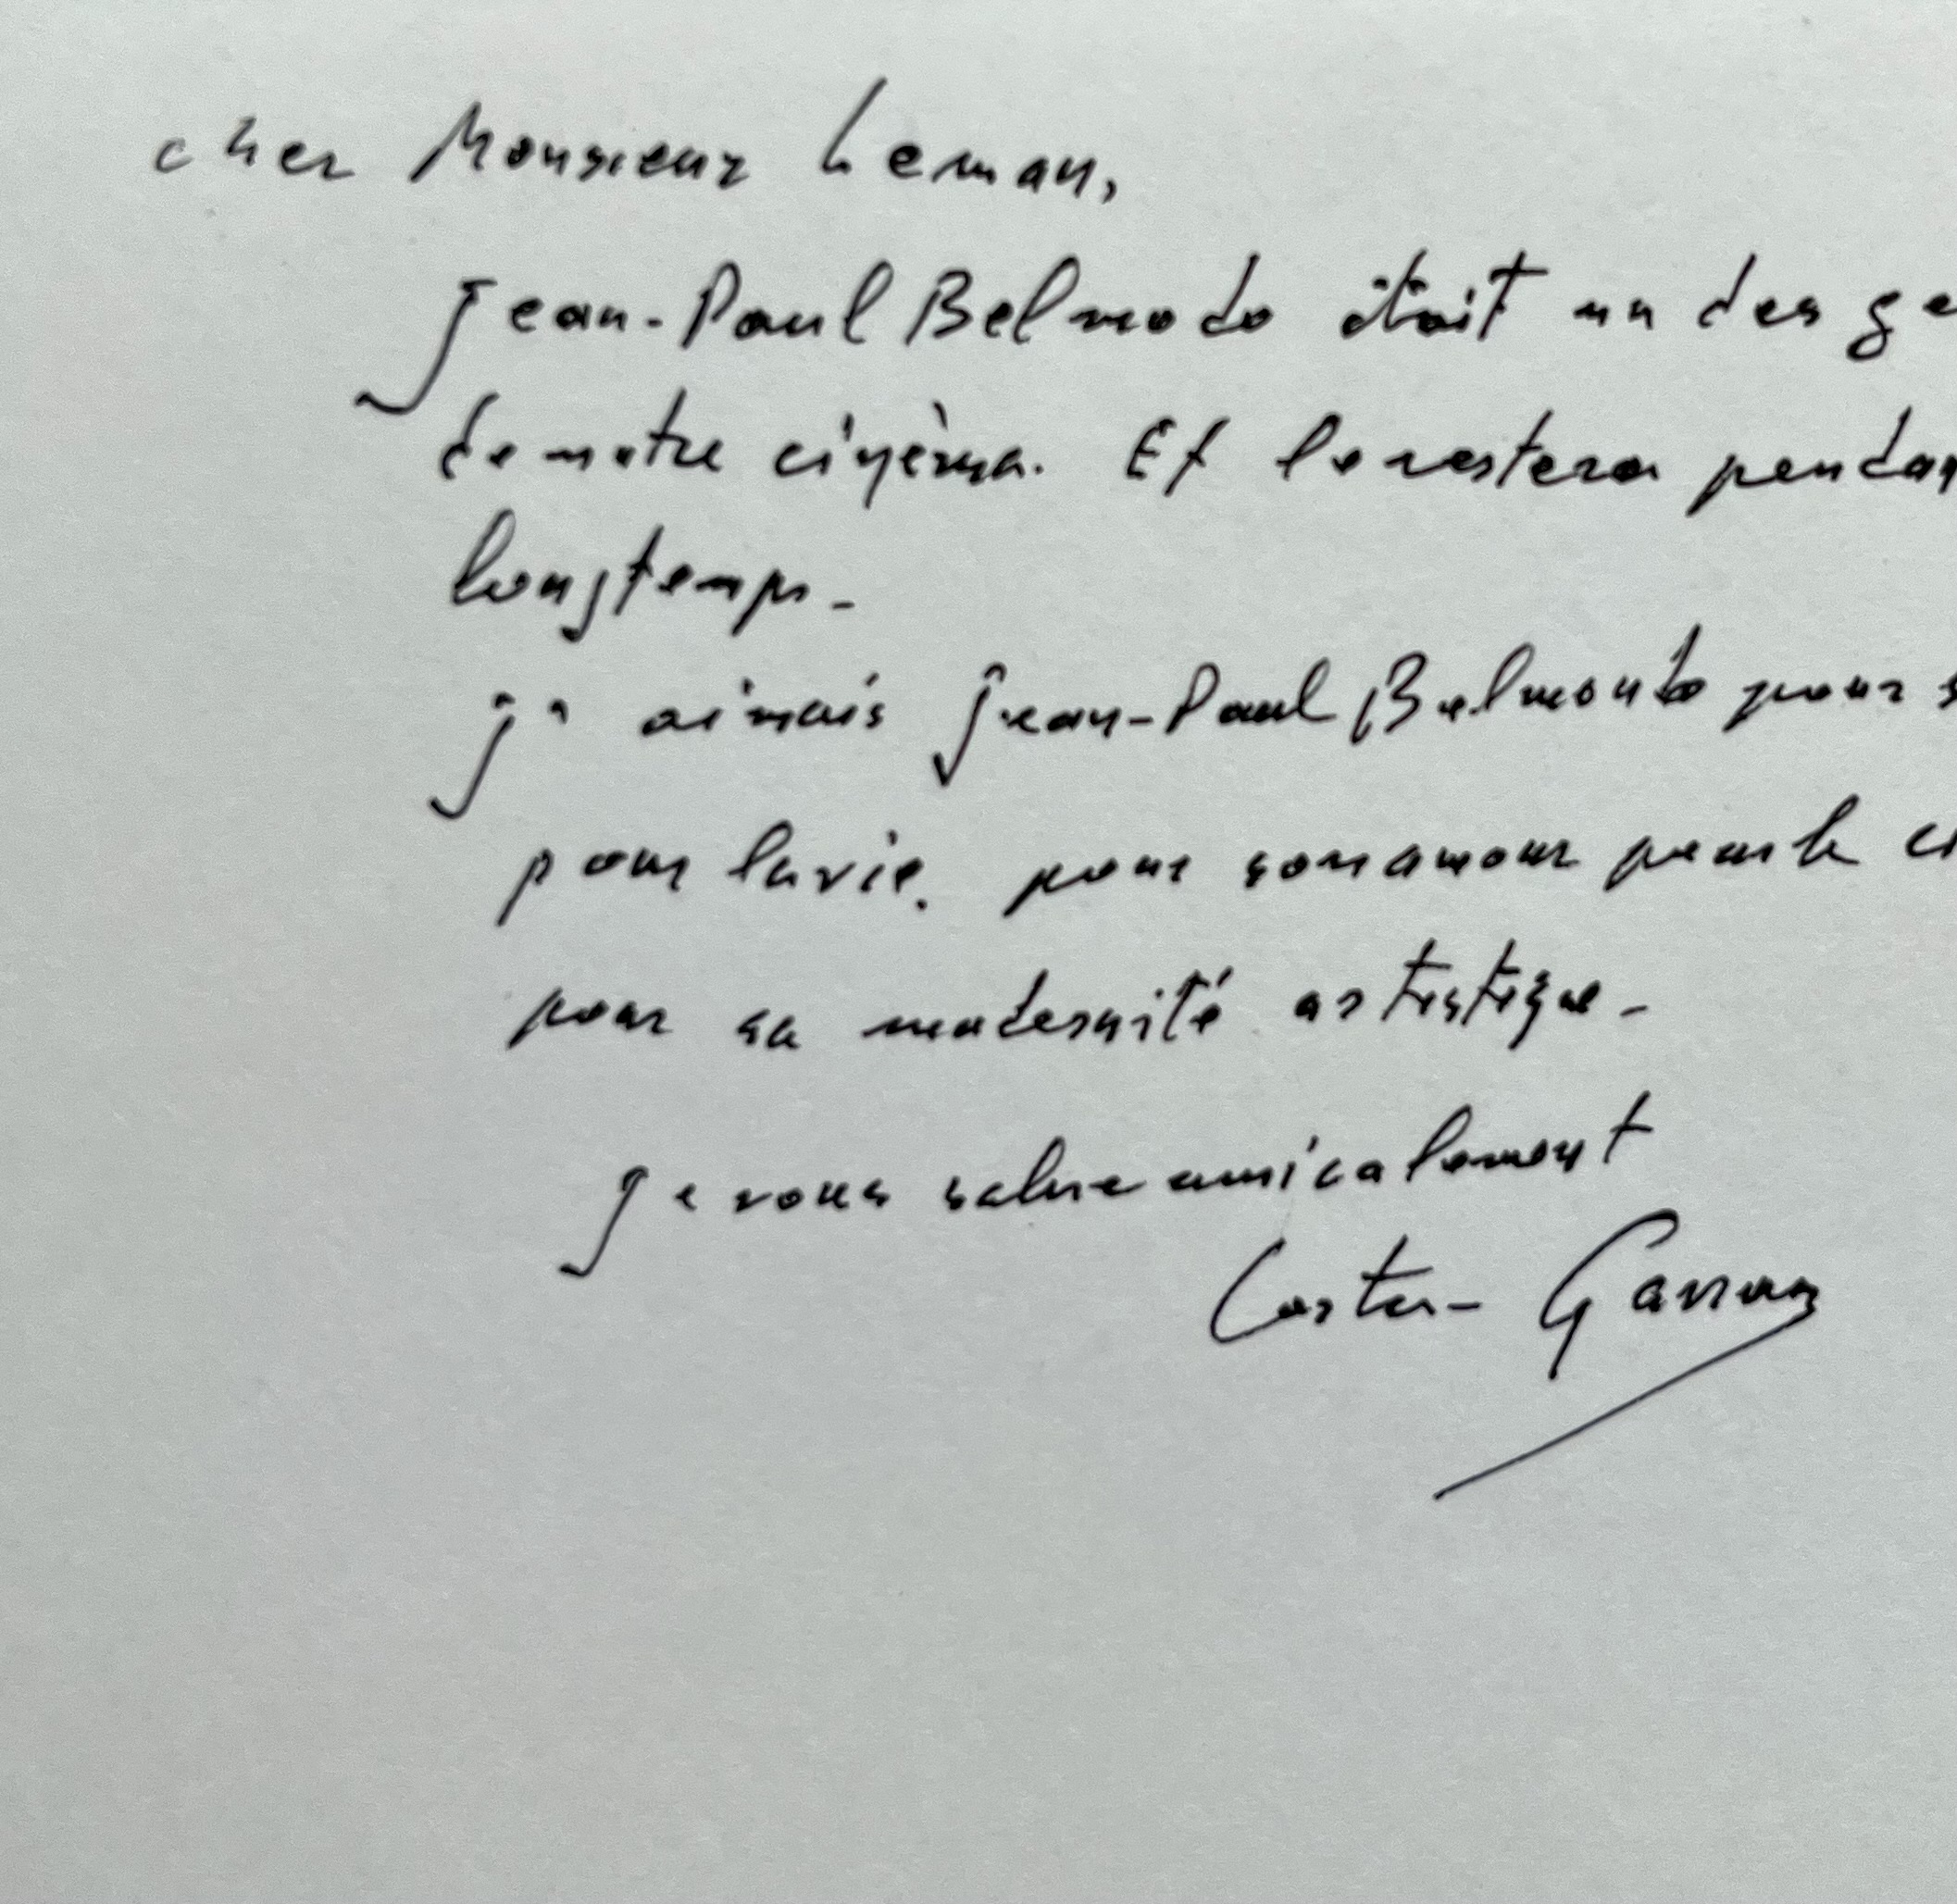 cher Monsieur Leman,
Jean-Paul Belmodo était un des ge
de notre cinéma. Et le restera pendan
longtemps -
j' aimais Jean-Paul Belmondo pour s
pour la vie. pour son amour pour le ci
pour sa modernité artistique -
Je vous salue amicalement
Costa - Gavras